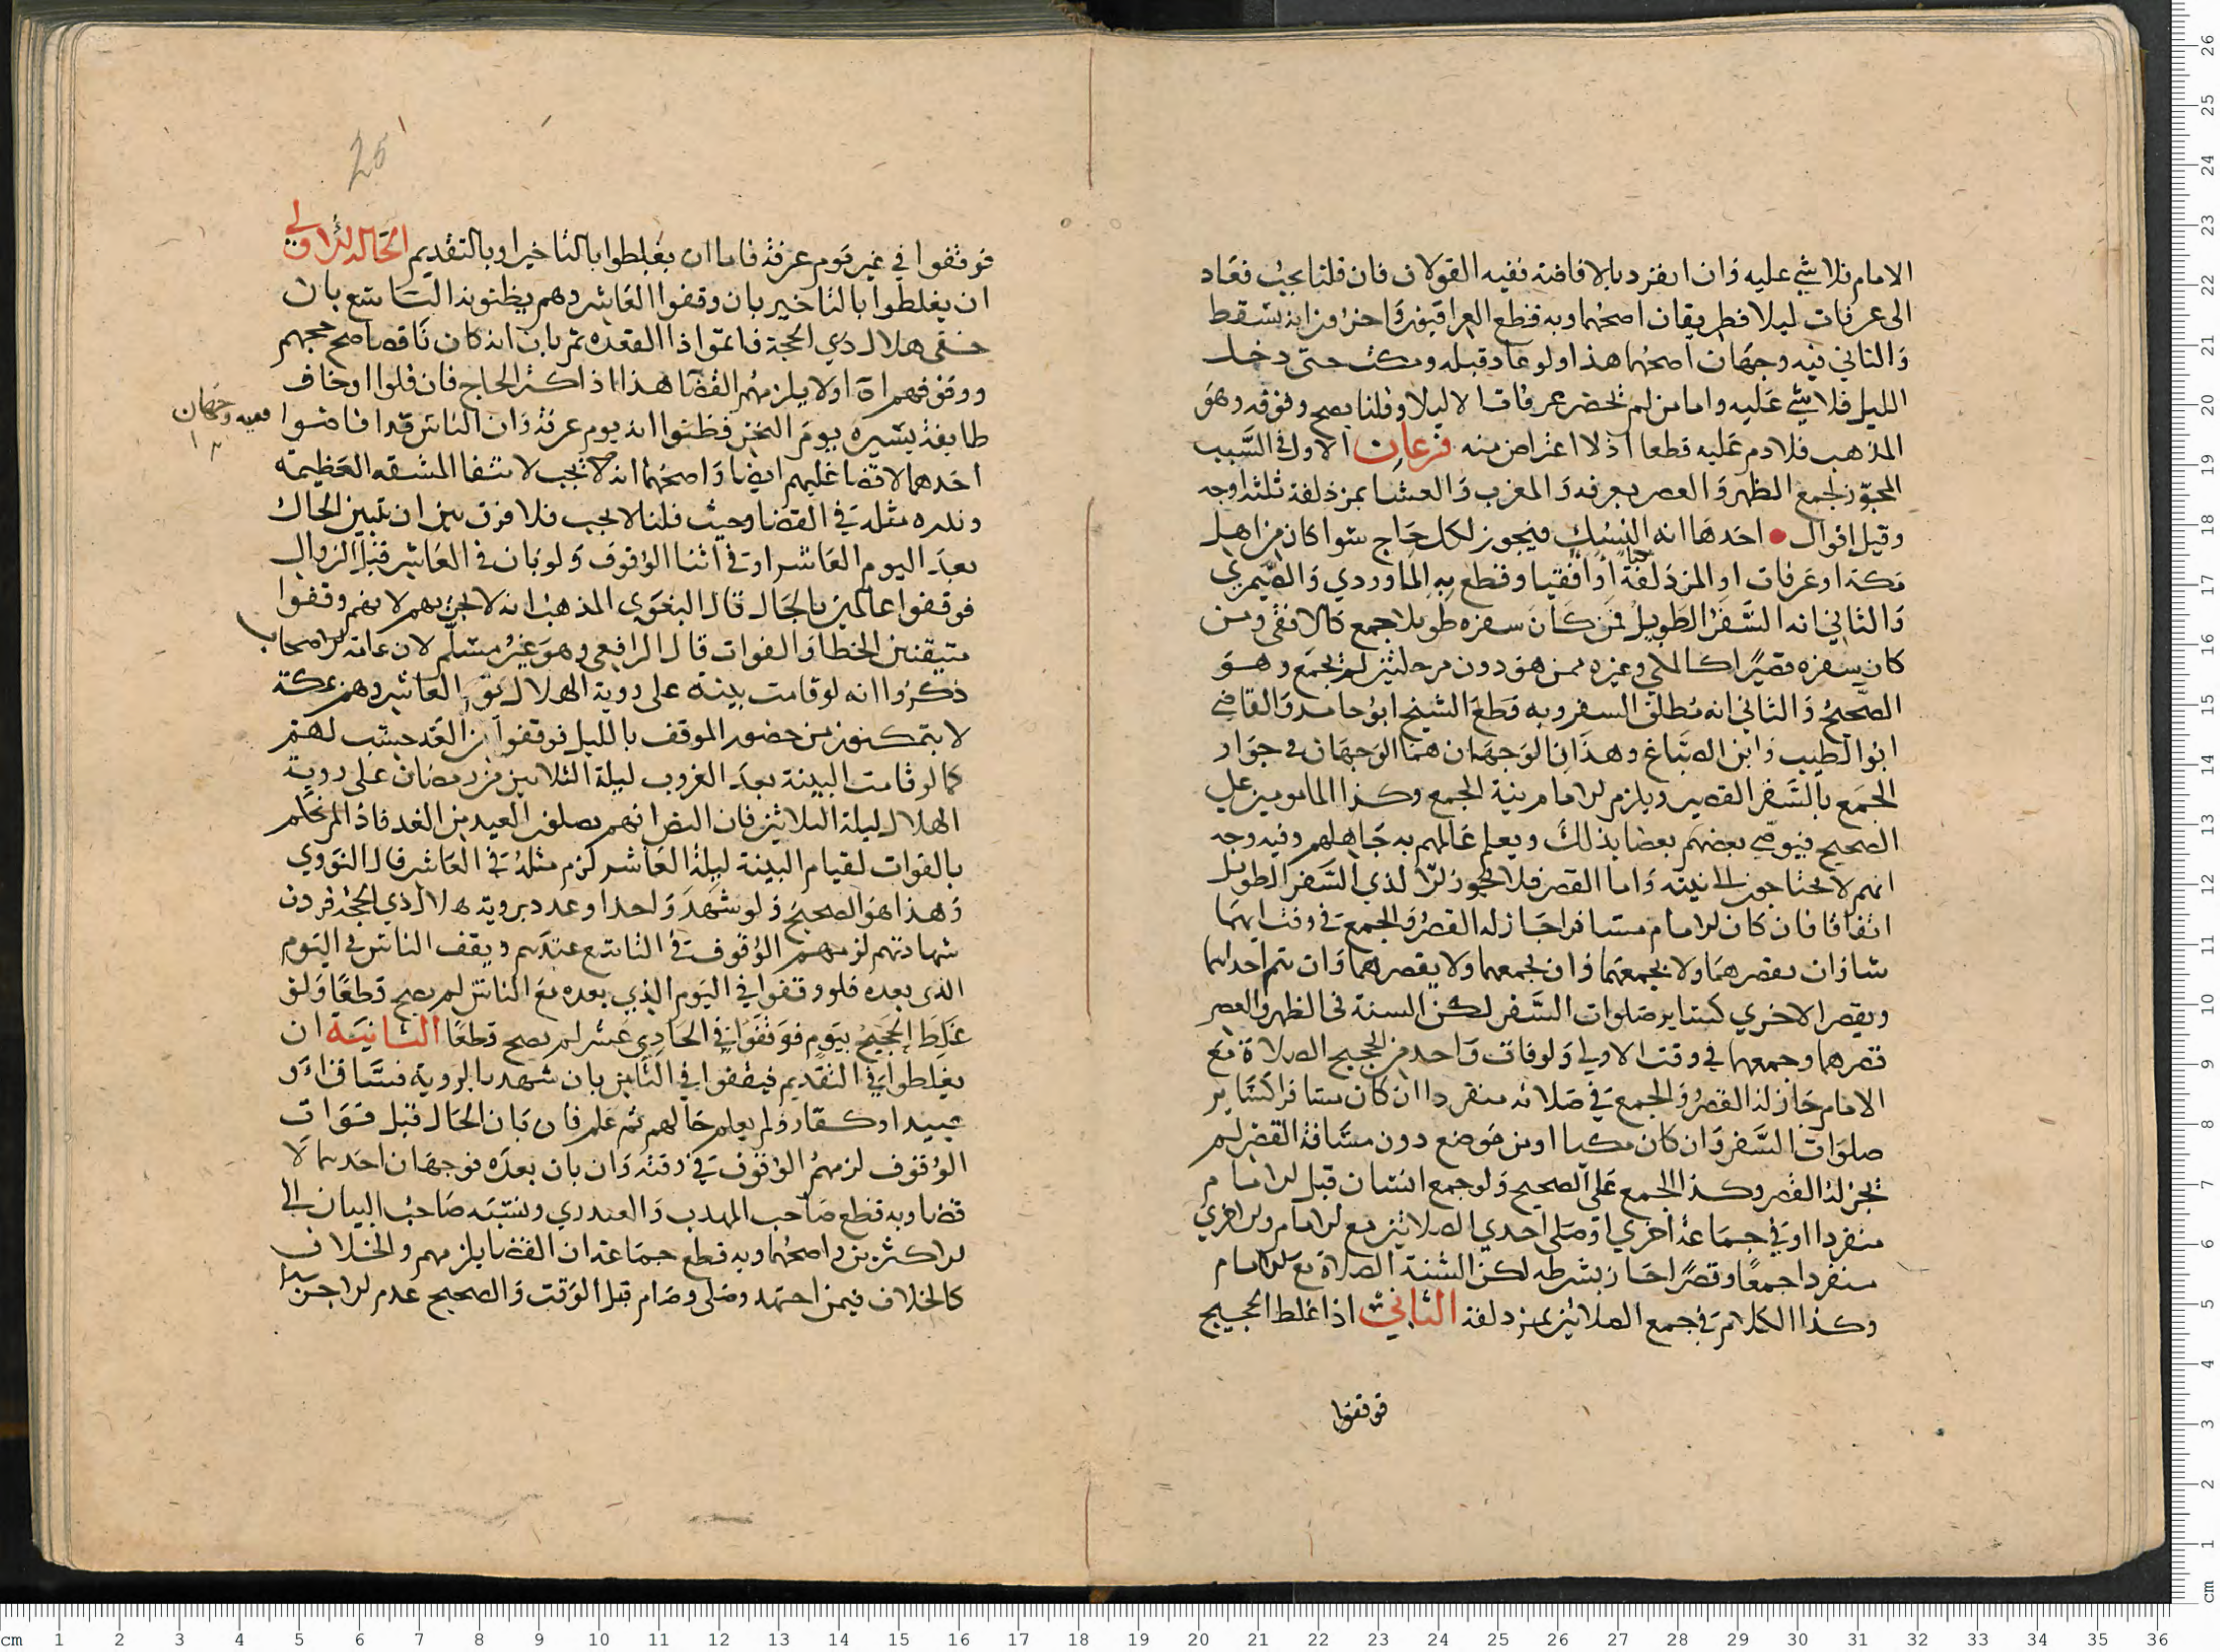 الامام فلا شي عليه وان انفرد بالافاضة ففيه القولان فان قلنا يجب فعاد
الى عرفات ليلا فطريقان اصحهما وبه قطع العراقيون واخرون انه يسقط
والثاني فيه وجهان اصحهما هذا ولو عاد قبله ومكث حتى دخل
الليل فلا شي عليه واما من لم يحضر عرفات الا ليلا وقلنا يصح وقوفه وهو
المذهب فلا دم عليه قطعا اذ لا اعتراض منه فرعان الاول في السبب
المجوز لجمع الظهر والعصر بعرفة والمغرب والعشا بمزدلفة ثلثة اوجه
وقيل اقوال احدها انه النسك فيجوز لكل حاج سوا كان من اهل
مكة او عرفات او المزدلفة او افقيا وقطع به الماوردي والصيمري
والثاني انه السفر الطويل فمن كان سفره طويلا جمع كالافقي ومن
كان سفره قصيرا كالمكي وغيره ممن هو دون مرحلتين لم يجمع وهو
الصحيح والثاني انه مطلق السفر وبه قطع الشيخ ابو حامد والقاضي
ابو الطيب وابن الصباغ وهذان الوجهان هما الوجهان في جواز
الجمع بالسفر القصير ويلزم الامام نية الجمع وكذا المامومين على
الصحيح فيوصي بعضهم بعضا بذلك ويعلم عالمهم به جاهلهم وفيه وجه
انهم لا يحتاجون الى نية واما القصر فلا يجوز الا لذي السفر الطويل
اتفاقا فان كان الامام مسافرا جاز له القصر والجمع في وقت ايهما
شا وان يقصرهما ولا يجمعهما وان يجمعهما ولا يقصرهما وان يتم احداهما
ويقصر الاخري كساير صلوات السفر لكن السنة في الظهر والعصر
قصرهما وجمعهما في وقت الاولي ولو فات واحد من الحجيج الصلاة مع
الامام جاز له القصر والجمع في صلاته منفردا ان كان مسافرا كساير
صلوات السفر وان كان مكيا او من موضع دون مسافة القصر لم
يجز له القصر وكذا الجمع على الصحيح ولو جمع انسان قبل الامام
منفردا او في جماعة اخري او صلى احدي الصلاتين مع الامام والاخرى
منفردا جمعا وقصرا جاز بشرطه لكن السنة الصلاة مع الامام
وكذا الكلام في جمع الصلاتين بمزدلفة الثاني اذا غلط الحجيج
فوقفوا
25
فوقفوا في غير يوم عرفة فاما ان يغلطوا بالتاخير او بالتقديم الحالة الاولي
ان يغلطوا بالتاخير بان وقفوا العاشر وهم يظنونه التاسع بان
خفى هلال ذي الحجة فاتموا ذا القعده ثم بان انه كان ناقصا صح حجهم
ووقوفهم اذ لا يلزمهم القضا هذا اذا كثر الحاج فان قلوا او خاف
طايفة يسيرة يوم النحر فظنوا انه يوم عرفة وان الناس قد افاضوا
ففيه وجهان
احدهما لا قضا عليهم ايضا واصحهما انه لا يجب لانتفا المشقه العظيمه
وندره مثله في القضا وحيث قلنا لا يجب فلا فرق بين ان يتبين الحال
بعد اليوم العاشر او في اثنا الوقوف ولو بان في العاشر قبل الزوال
فوقفوا عالمين بالحال قال البغوي المذهب انه لا يجزيهم لانهم وقفوا
متيقنين الخطا والفوات قال الرافعي وهو غير مسلم لان عامة الاصحاب
ذكروا انه لو قامت بينة على روية الهلال العاشر وهم بمكة
لا يتمكنون من حضور الموقف بالليل فوقفوا من الغد حسب لهم
كما لو قامت البينة بعد الغروب ليلة الثلاثين من رمضان على روية
الهلال ليلة الثلاثين فان النص انهم يصلون العيد من الغد فاذا لم نحكم
بالفوات لقيام البينة ليلة العاشر لزم مثله في العاشر قال النووي
وهذا هو الصحيح ولو شهد واحدا وعدد بروية هلال ذي الحجة فردت
شهادتهم لزمهم الوقوف في التاسع عندهم ويقف الناس في اليوم
الذي بعده فلو وقفوا في اليوم الذي بعده مع الناس لم يصح قطعا ولو
غلط الحجيج بيوم فوقفوا في الحادي عشر لم يصح قطعا الثانية ان
يغلطوا في التقديم فيقفوا في الثامن بان شهد بالروية
عبيد او كفار ولم يعلم حالهم ثم علم فان بان الحال قبل فوات
الوقوف لزمهم الوقوف في وقته وان بان بعده فوجهان احدهما لا
قضا وبه قطع صاحب المهذب والعبدري ونسبه صاحب البيان الى
الاكثرين واصحهما وبه قطع جماعة ان القضا يلزمهم والخلاف
كالخلاف فيمن اجتهد وصلى وصام قبل الوقت والصحيح عدم الاجزا